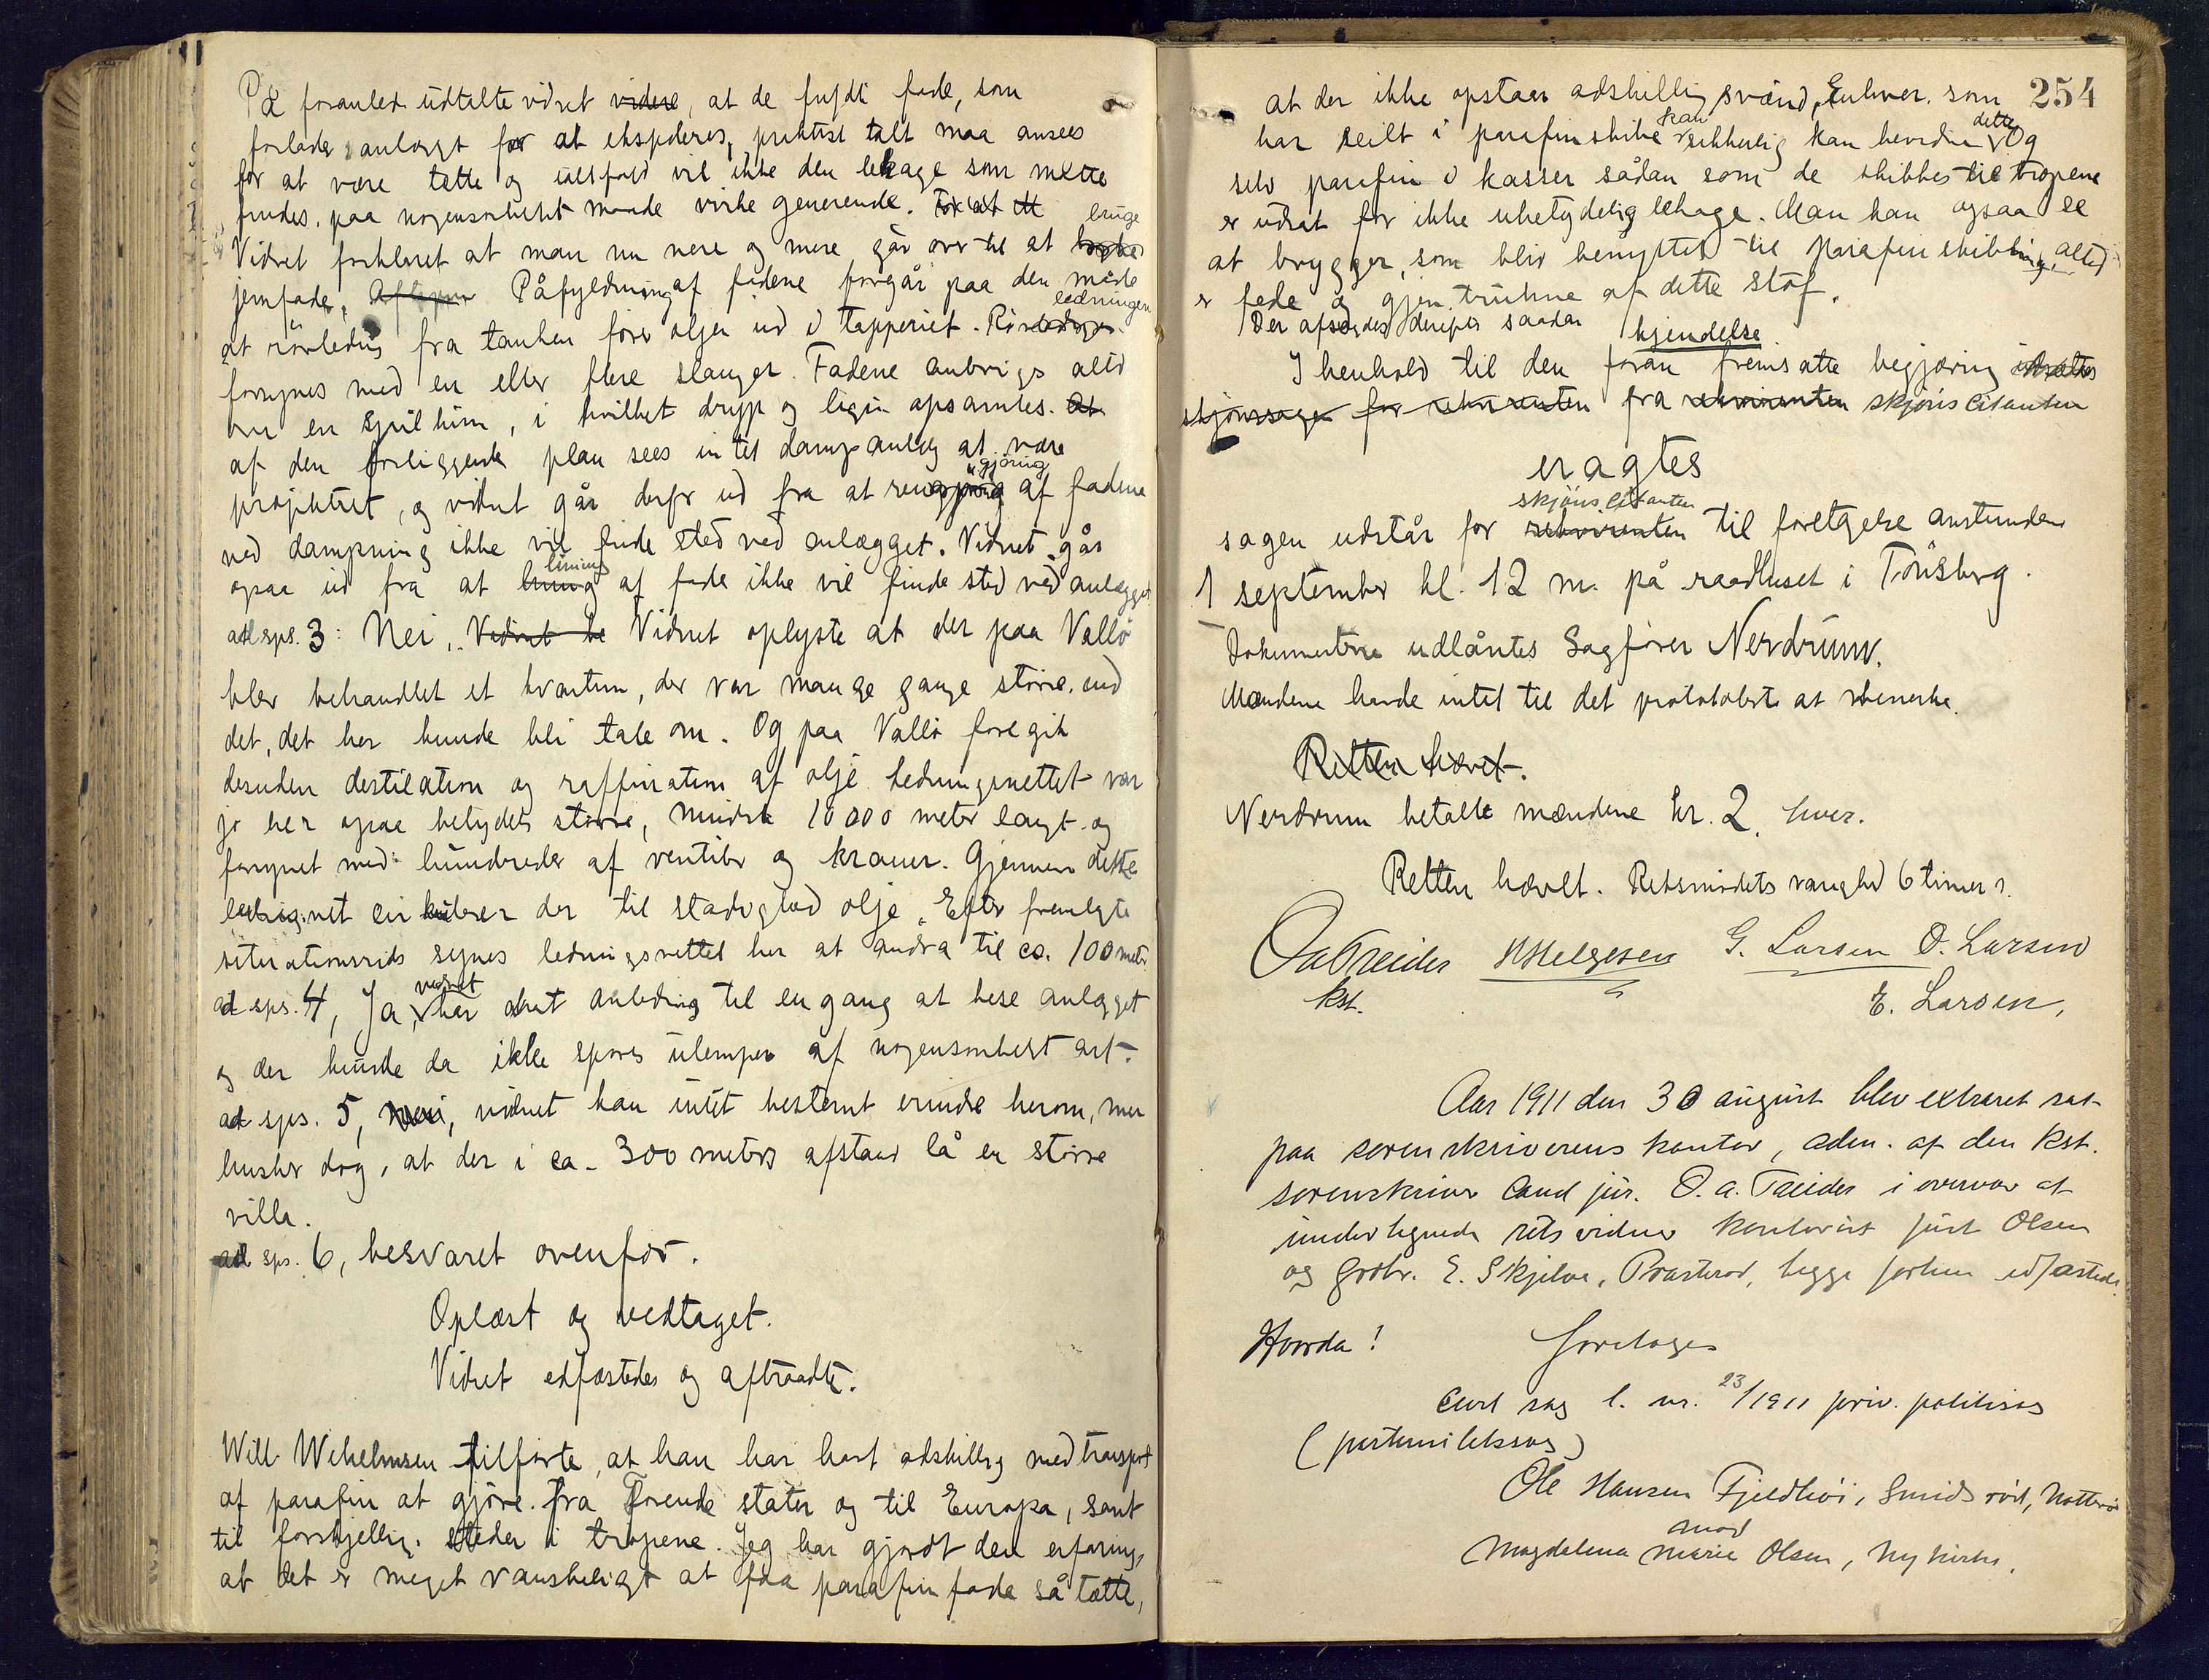 På foranled. udtalte vidnet videre, at de fyldte fade, som
forlader anlægget for at ekspederes, praktist talt maa ansees
for at være tætte og ialfald vil ikke den lekage som måtte
findes, paa nogensomhelst maade virke generende. For at et
Vidnet forklaret at man nu mere og mere går over til at bruge
jernfade. Aftapn Påfyldning af fadene foregår paa den måde
at rörledning fra tanken fører oljen ud i tapperiet. Rörledningen
forsynes med en eller flere slanger. Fadene anbrings altid
over en spilkum, i hvilket drypp og lign. opsamles. At
af den foreliggende plan sees intet dampanlæg at være
projektert, og vidnet går derfor ud fra at rengjöring af fadene
ved dampning ikke vil finde sted ved anlægget. Vidnet går
ogsaa ud fra at liming af fade ikke vil finde sted ved anlægget
ad sps. 3: Nei. Vidnet be Vidnet oplyste at der paa Vallö
blev behandlet et kvantum, der var mange gange större end
det, det her kunde bli tale om. Og paa Vallö foregik
desuden destilation og raffination af olje. Ledningsnettet var
jo her ogsaa betydelig større, mindst 10 000 meter langt og
forsynet med hundreder af ventiler og kraner. Gjennem dette
ledningsnet cirkulerer der til stadighed olje. Efter fremlagte
situationsrids synes ledningsnettet her at andra til ca. 100 meter
ad sps. 4, Ja, vidnet har havt anledning til engang at bese anlægget
og der kunde da ikke spores ulemper af nogensomhelst art.
ad sps. 5, Nei, vidnet kan intet bestemt erindre herom, men
husker dog, at der i ca. 300 meters afstand lå en större
villa.
ad sps. 6, besvaret ovenfor.
Oplæst og vedtaget.
Vidnet edfæstedes og aftraadte.
Will. Wilhelmsen tilførte, at han har havt adskillig med transport
af parafin at gjöre fra Forende stater og til Europa, samt
til forskjellig. steder i tropene. Jeg har gjordt den erfaring,
at det er meget vanskeligt at faa parafinfade så tætte,
254
at der ikke opstaar adskillig svind, Enhver som
har seilt i parafinskibe kan sikkerlig kan bevidne dette Og
selv parafin i kasser sådan som de skibbes til tropene
er udsat for ikke ubetydelig lekage. Man kan ogsaa se
at brygger, som bliv benyttet til parafinskibning, altid
er fede og gjen.trukne af dette stof.
Der afsagdes derefter saadan
kjendelse
I henhold til den foran fremsatte begjæring udsættes
skjönssagen for rekvirenten fra rekvirenten skjönscitanten
eragtes
sagen udstår for rekvirenten skjönscitanten til foretagelse anstundende
1 september kl. 12 m. på raadhuset i Tönsberg.
Dokumenterne udlåntes Sagfører Nerdrum.
Mændene havde intet til det protokolerte at bemerke.
Retten hævet.
Nerdrum betalte mændene kr. 2, hver.
Retten hævet. Retsmødets varighed 6 timer.
O a Treider H Helgesen G. Larsen O. Larsen
kst. E. Larsen,
Aar 1911 den 30 august blev extraret sat
paa sorenskriverens kontor, adm. af den kst.
sorenskriver cand jur. O. a. Treider i overvær af
undertegnede retsvidner kontorist Just Olsen
og grdbr. E. Skjelve, Præsterød, begge forhen edfæstede.
Hvorda! foretoges
Extr sag l. nr. 23/1911 priv. politisag
(paternitetssag)
Ole Hansen Fjeldhöi, Smidsröd, Nötterö
mod
Magdalena Marie Olsen, Nykirke.